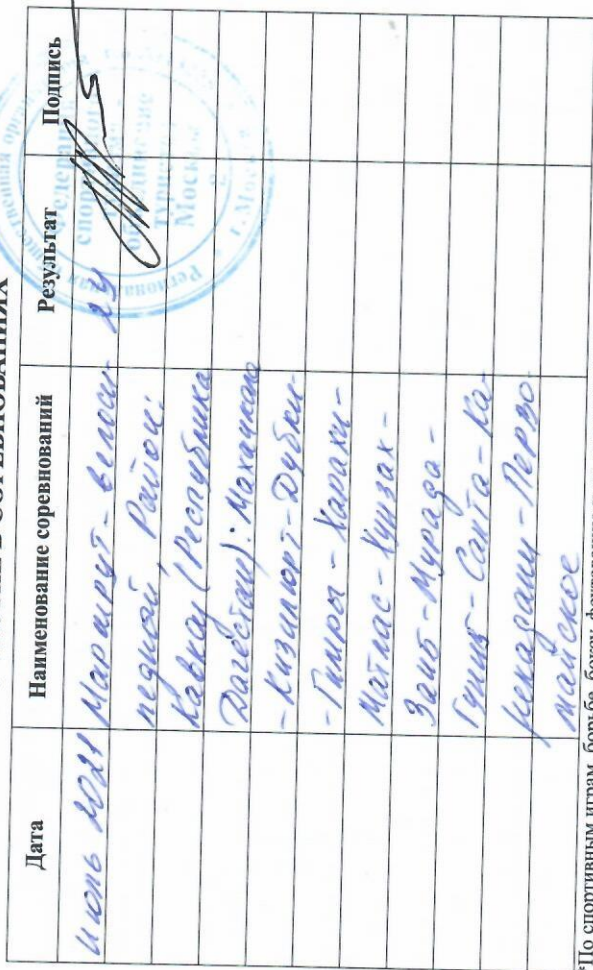 СОРЕВНОВАНИЯХ
Дата Наименование соревнований Результат Подпись
июнь 2021 Маршрут - велоси- 2У
педной, Район:
Кавказ (Республика
Дагестан): Махачкала
- Кизилюрт - Дубки -
- Гимры - Хараки -
Матлас - Хунзах -
Заиб - Мурада -
Гуниб - Салта - Ка-
ненадаху - Перво
майское
*По спортивным играм, борьбе, боксу, фехтованию